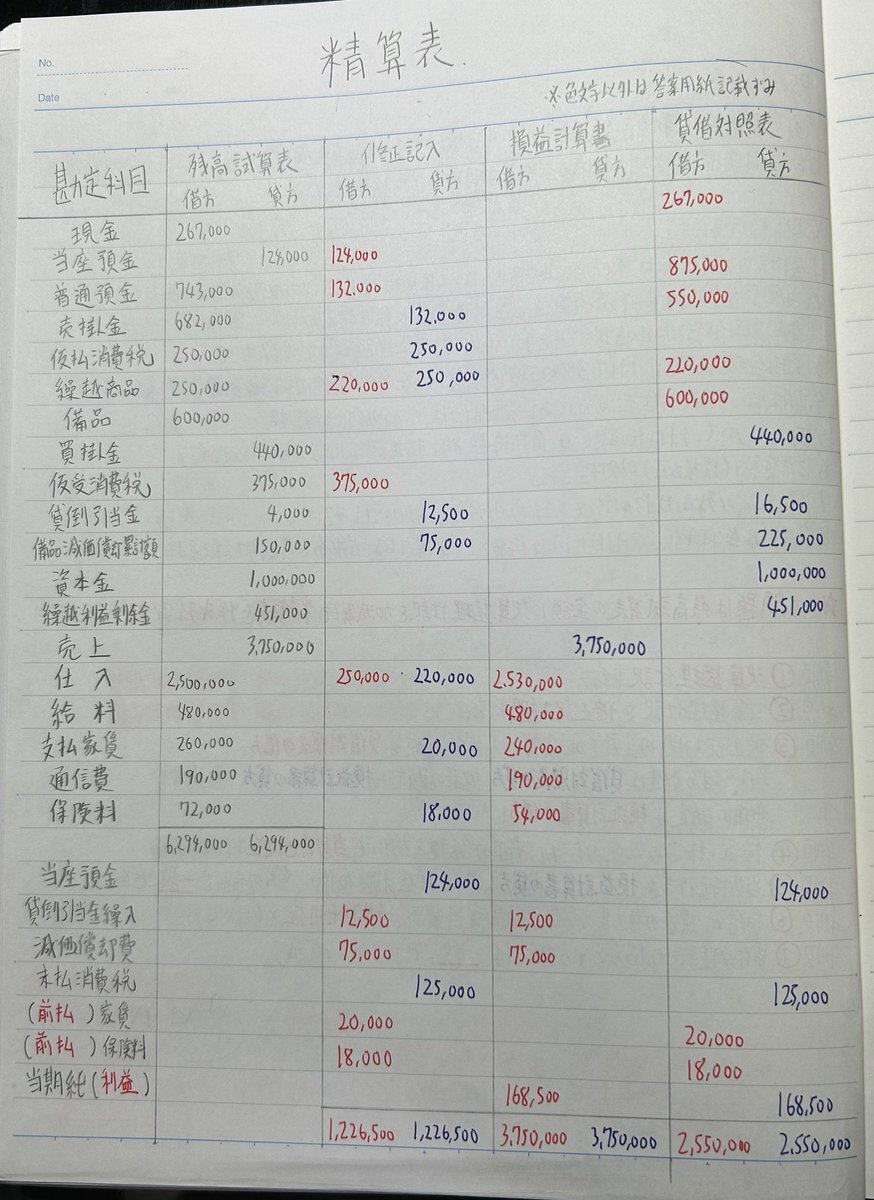 No.
Date
精算表.
※色文字以外は答案用紙記載ずみ
勘定科目 残高試算表 修正記入 損益計算書 貸借対照表
借方 貸方 借方 貸方 借方 貸方 借方 貸方
現金 267,000 267,000
当座預金 124,000 124,000
普通預金 743,000 132.000 875,000
売掛金 682,000 132.000 550,000
仮払消費税 250,000 250,000
繰越商品 250,000 220,000 250,000 220,000
備品 600,000 600,000
買掛金 440,000 440,000
仮受消費税 375,000 375,000
貸倒引当金 4,000 12,500 16,500
備品減価償却累計額 150,000 75,000 225,000
資本金 1,000,000 1,000,000
繰越利益剰余金 451,000 451,000
売上 3,750,000 3,750,000
仕入 2,500,000 250,000 220,000 2.530,000
給料 480,000 480,000
支払家賃 260,000 20,000 240,000
通信費 190,000 190,000
保険料 72,000 18,000 54,000
6,294,000 6,294,000
当座預金 124,000 124,000
貸倒引当金繰入 12,500 12,500
減価償却費 75,000 75,000
未払消費税 125,000 125,000
(前払)家賃 20,000 20,000
(前払)保険料 18,000 18,000
当期純(利益) 168,500 168,500
1,226,500 1,226,500 3,750,000 3,750,000 2,550,000 2.550,000